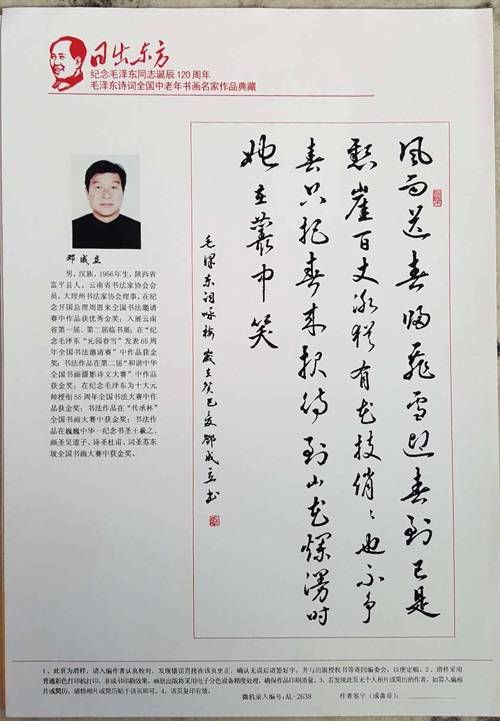 日出东方
纪念毛泽东同志诞辰120周年
毛泽东诗词全国中老年书画名家作品典藏
風雨送春歸飛雪迎春到已是
懸崖百丈冰猶有花枝俏俏也不争
春只把春来报待到山花爛漫时
她在叢中笑
毛泽东词咏梅 岁在癸巳夏 邓成立书
邓成立
男，汉族，1956年生，陕西省
富平县人，云南省书法家协会会
员，大理州书法家协会理事，在纪
念开国总理周恩来全国书法邀请
赛中作品获优秀金奖；入展云南
省第一届、第二届临书展；在“纪
念毛泽东“沁园春雪”发表65周
年全国书法邀请赛”中作品获金
奖；书法作品在第二届“和谐中华
全国书画摄影诗文大赛”中作品
获金奖；在纪念毛泽东为十大元
帅授衔55周年全国书法大赛中作
品获金奖；书法作品在“传承杯”
全国书画大赛中获金奖；书法作
品在巍巍中华—纪念书圣王羲之、
画圣吴道子、诗圣杜甫、词圣苏东
坡全国书画大赛中获金奖。
1、此页为清样，请入编作者认真校对，发现错误直接在该页更正，确认无误后请签好字，并与出版授权书等寄回编委会，以便定稿。2、清样采用
普通彩色打印机打印，非成书印刷效果，画册出版将采用电子分色设备精度处理，确保作品印刷质量。3、若发现此页无个人相片或简历的作者，如需入编相
片或简历，请将相片或简历贴于该页即可。4、该页复印有效。
微机录入编号:AL-2638
作者签字（或盖章）：